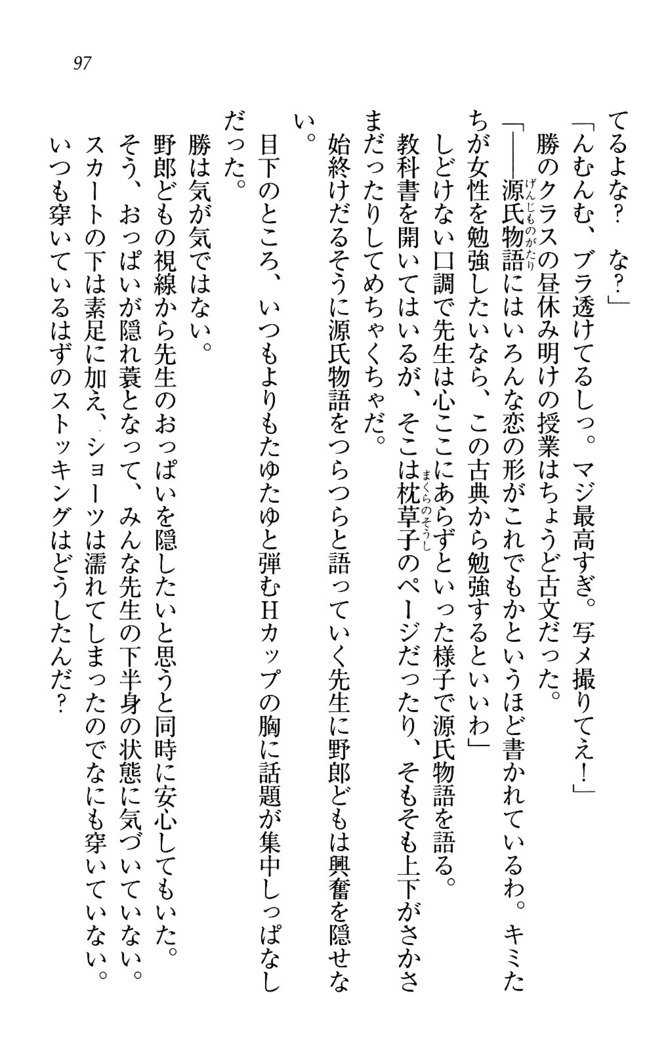 97
てるよな?　な?」
「んむんむ、ブラ透けてるしっ。マジ最高すぎ。写メ撮りてえ！」
勝のクラスの昼休み明けの授業はちょうど古文だった。
「――源氏物語にはいろんな恋の形がこれでもかというほど書かれているわ。キミた
げんじものがたり
ちが女性を勉強したいなら、この古典から勉強するといいわ」
しどけない口調で先生は心ここにあらずといった様子で源氏物語を語る。
教科書を開いてはいるが、そこは枕草子のページだったり、そもそも上下がさかさ
まくらのそうし
まだったりしてめちゃくちゃだ。
始終けだるそうに源氏物語をつらつらと語っていく先生に野郎どもは興奮を隠せな
い。
目下のところ、いつもよりもたゆたゆと弾むHカップの胸に話題が集中しっぱなし
だった。
勝は気が気ではない。
野郎どもの視線から先生のおっぱいを隠したいと思うと同時に安心してもいた。
そう、おっぱいが隠れ蓑となって、みんな先生の下半身の状態に気づいていない。
スカートの下は素足に加え、ショーツは濡れてしまったのでなにも穿いていない。
いつも穿いているはずのストッキングはどうしたんだ?